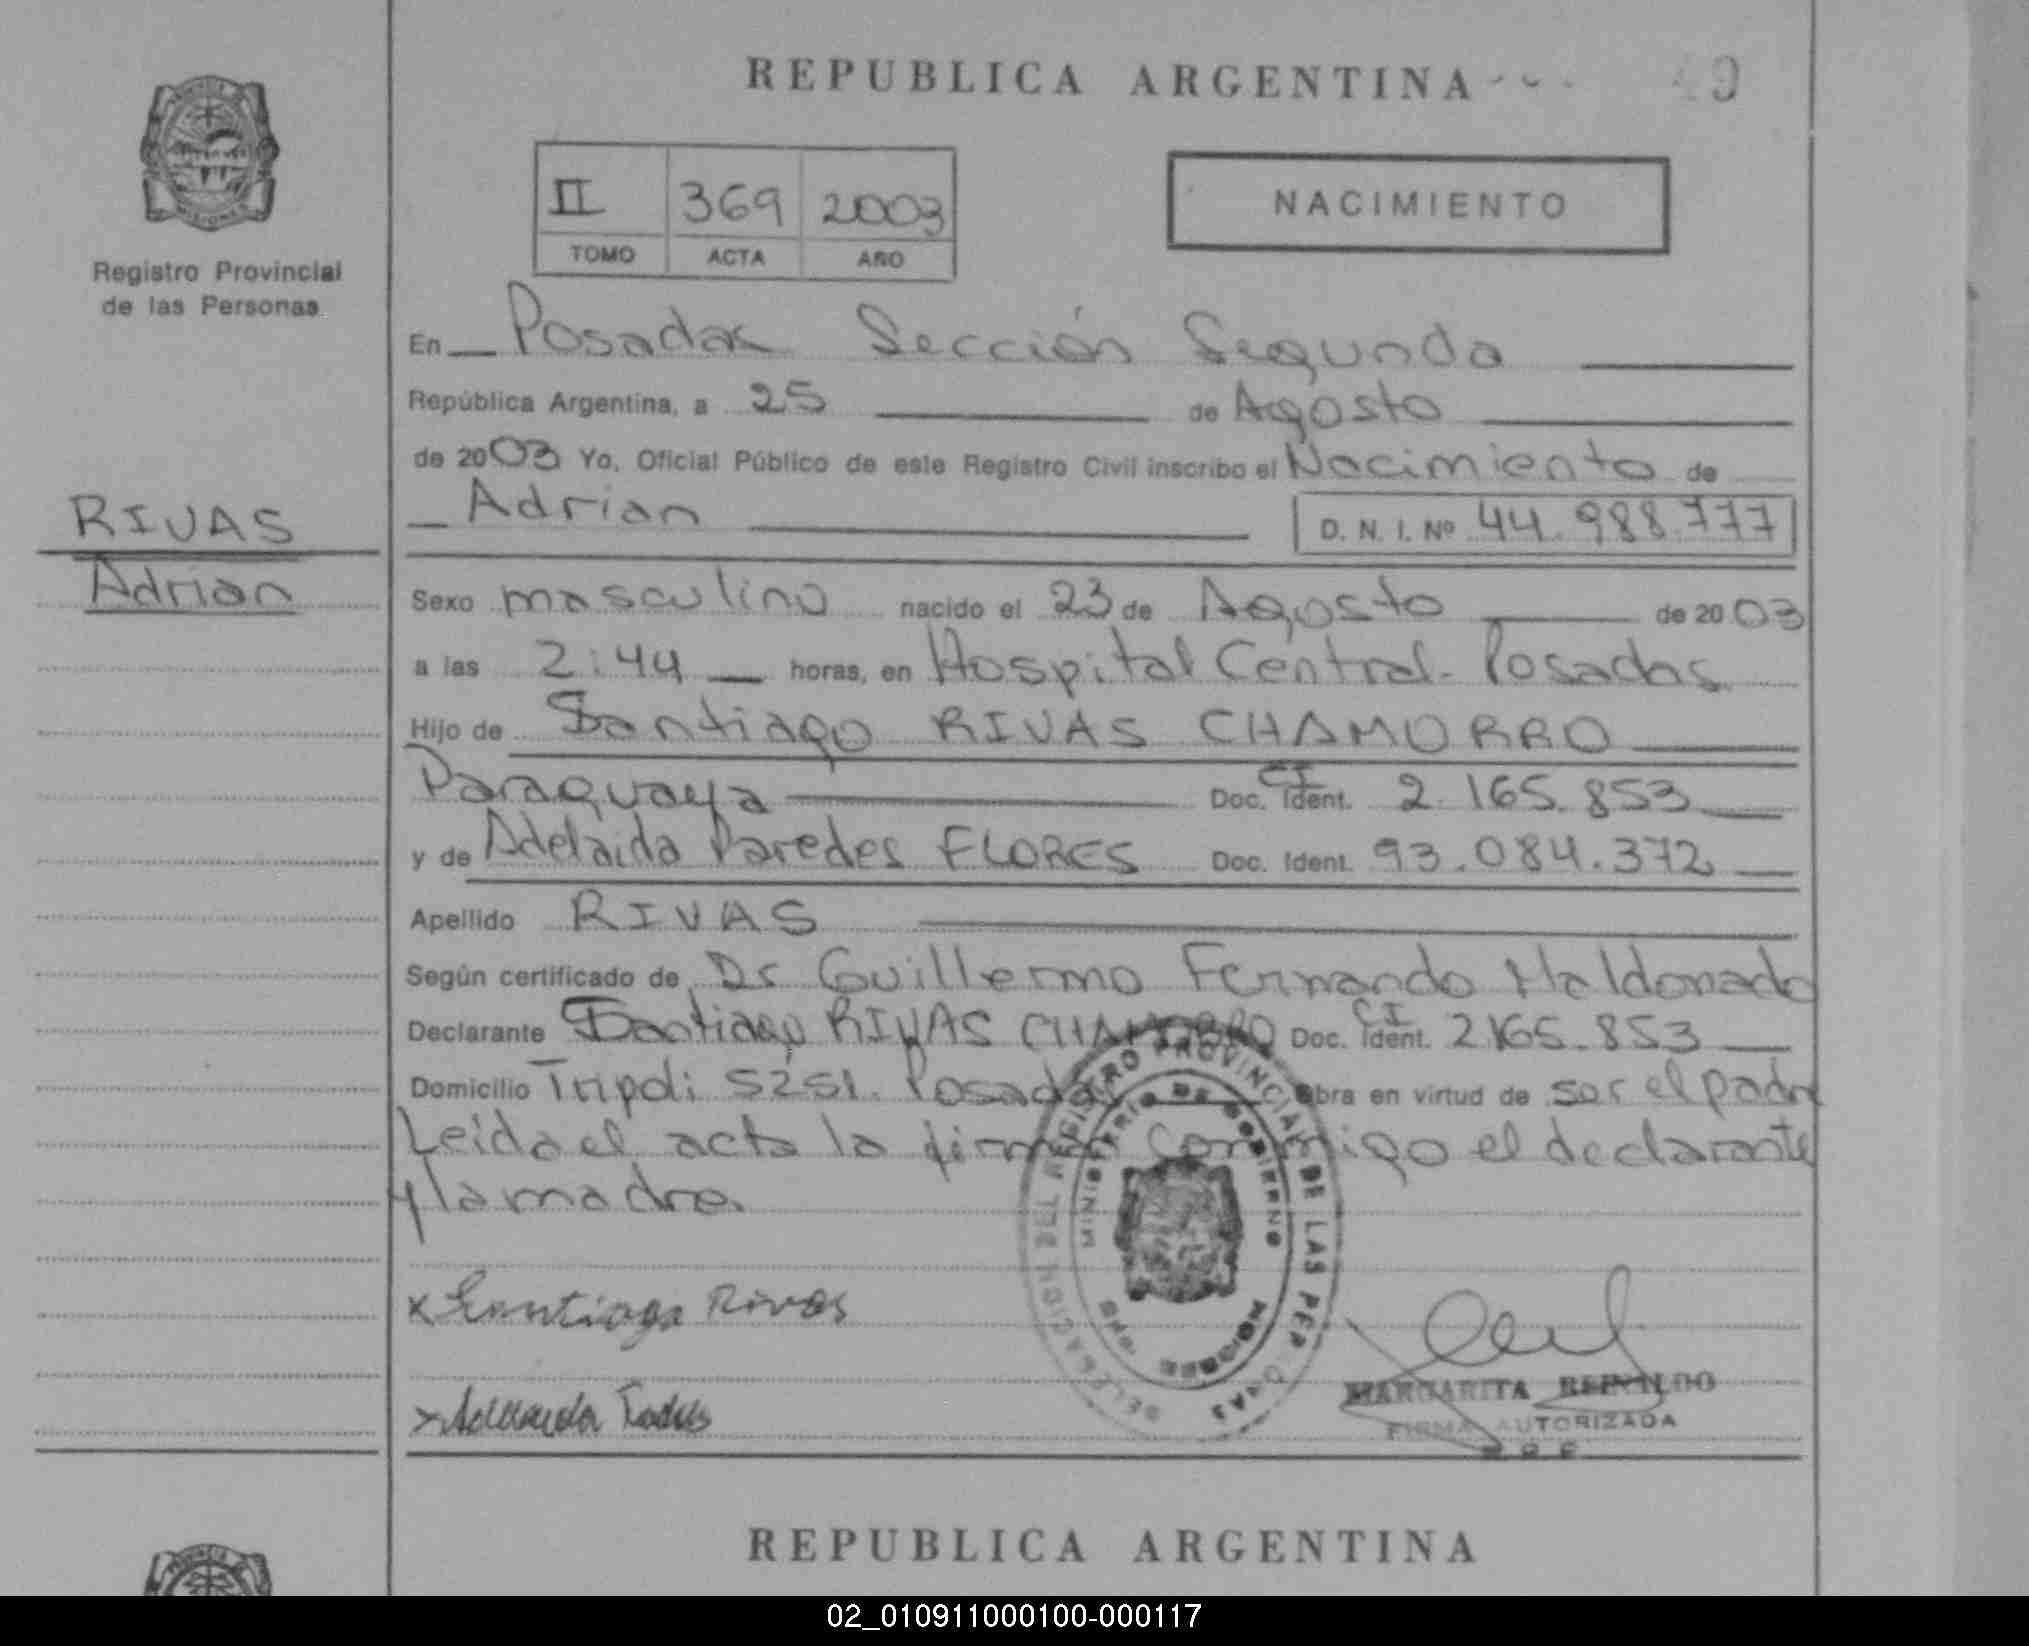 REPUBLICA ARGENTINA
49
II 369 2003
TOMO ACTA AÑO
NACIMIENTO
Registro Provincial
de las Personas
En Posadas Sección Segunda
República Argentina, a 25 de Agosto
de 2003 Yo, Oficial Público de este Registro Civil inscribo el Nacimiento de
Adrian D. N. I. Nº 44.988.777
RIVAS
Adrian
Sexo masculino nacido el 23 de Agosto de 2003
a las 2:44 horas, en Hospital Central - Posadas
Hijo de Santiago RIVAS CHAMORRO
Paraguaya Doc. Ident. CI 2.165.853
y de Adelaida Paredes FLORES Doc. Ident. 93.084.372
Apellido RIVAS
Según certificado de Dr Guillermo Fernando Maldonado
Declarante Santiago RIVAS CHAMORRO Doc. Ident. CI 2.165.853
Domicilio Tripoli 5251. Posadas Obra en virtud de ser el padre
Leida el acta la firman conmigo el declarante
y la madre.
DELEGACION DEL REGISTRO PROVINCIAL DE LAS PERSONAS
MINISTERIO DE GOBIERNO
MISIONES
x Santiago Rivas
x Adelaida
MARGARITA REINALDO
FIRMA AUTORIZADA
REPUBLICA ARGENTINA
02_010911000100-000117